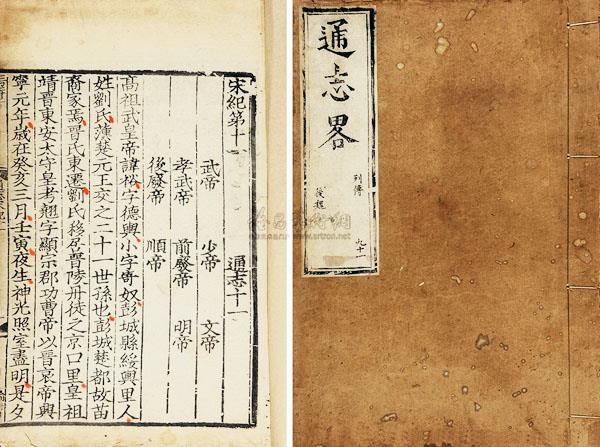 宋紀第十一 通志十一
武帝 少帝 文帝
孝武帝 前廢帝 明帝
後廢帝 順帝
高祖武皇帝諱裕字德輿小字寄奴彭城縣綏輿里人
姓劉氏漢楚元王交之二十一世孫也彭城楚都故苗
裔家焉晉氏東遷劉氏移居晉陵丹徒之京口里皇祖
靖晉東安太守皇考翹字顯宗郡功曹帝以晉哀帝興
寧元年歲在癸亥三月壬寅夜生神光照室盡明是夕
通志畧
列傳 九十一